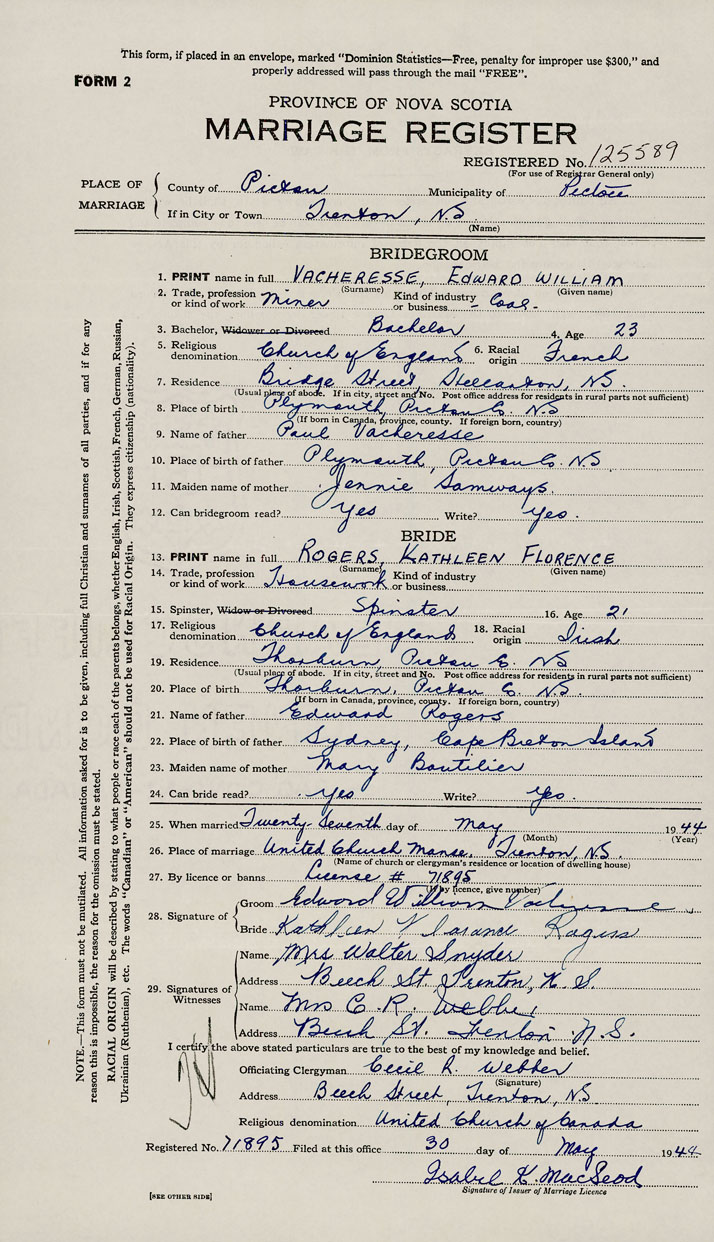 This form, if placed in an envelope, marked "Dominion Statistics—Free, penalty for improper use $300," and
properly addressed will pass through the mail "FREE".
FORM 2
PROVINCE OF NOVA SCOTIA
MARRIAGE REGISTER
REGISTERED No. 125589
(For use of Registrar General only)
PLACE OF MARRIAGE
County of Pictou Municipality of Pictou
If in City or Town Trenton, NS
(Name)
BRIDEGROOM
1. PRINT name in full VACHERESSE, EDWARD WILLIAM
(Surname) (Given name)
2. Trade, profession or kind of work Miner Kind of industry or business - Coal -
3. Bachelor, Widower or Divorced Bachelor 4. Age 23
5. Religious denomination Church of England 6. Racial origin French
7. Residence Bridge Street, Stellarton, NS.
(Usual place of abode. If in city, street and No. Post office address for residents in rural parts not sufficient)
8. Place of birth Plymouth, Pictou Co. NS
(If born in Canada, province, county. If foreign born, country)
9. Name of father Paul Vacheresse
10. Place of birth of father Plymouth, Pictou Co. NS
11. Maiden name of mother Jennie Samways.
12. Can bridegroom read? Yes Write? Yes.
BRIDE
13. PRINT name in full ROGERS, KATHLEEN FLORENCE
(Surname) (Given name)
14. Trade, profession or kind of work Housework Kind of industry or business
15. Spinster, Widow or Divorced Spinster 16. Age 21
17. Religious denomination Church of England 18. Racial origin Irish
19. Residence Thorburn, Pictou Co. NS
(Usual place of abode. If in city, street and No. Post office address for residents in rural parts not sufficient)
20. Place of birth Thorburn, Pictou Co. NS.
(If born in Canada, province, county. If foreign born, country)
21. Name of father Edward Rogers
22. Place of birth of father Sydney, Cape Breton Island
23. Maiden name of mother Mary Boutilier
24. Can bride read? Yes Write? Yes.
25. When married Twenty-Seventh day of May 1944
(Month) (Year)
26. Place of marriage United Church Manse, Trenton, NS.
(Name of church or clergyman's residence or location of dwelling house)
27. By licence or banns License # 71895
(If by licence, give number)
28. Signature of
Groom Edward William Vacheresse
Bride Kathleen Florence Rogers
29. Signatures of Witnesses
Name Mrs Walter Snyder
Address Beech St. Trenton, N.S.
Name Mrs C. R. Webber
Address Beech St. Trenton N.S.
I certify the above stated particulars are true to the best of my knowledge and belief.
Officiating Clergyman Cecil R. Webber
(Signature)
Address Beech Street, Trenton, NS.
Religious denomination United Church of Canada
Registered No. 71895 Filed at this office 30 day of May 1944
Isabel K. MacLeod
Signature of Issuer of Marriage Licence
[SEE OTHER SIDE]
NOTE.—This form must not be mutilated. All information asked for is to be given, including full Christian and surnames of all parties, and if for any
reason this is impossible, the reason for the omission must be stated.
RACIAL ORIGIN will be described by stating to what people or race each of the parents belongs, whether English, Irish, Scottish, French, German, Russian,
Ukrainian (Ruthenian), etc. The words "Canadian" or "American" should not be used for Racial Origin. They express citizenship (nationality).